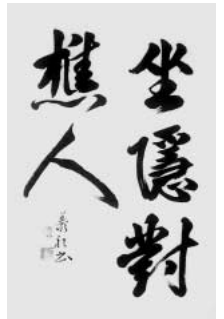 坐隱對
樵人